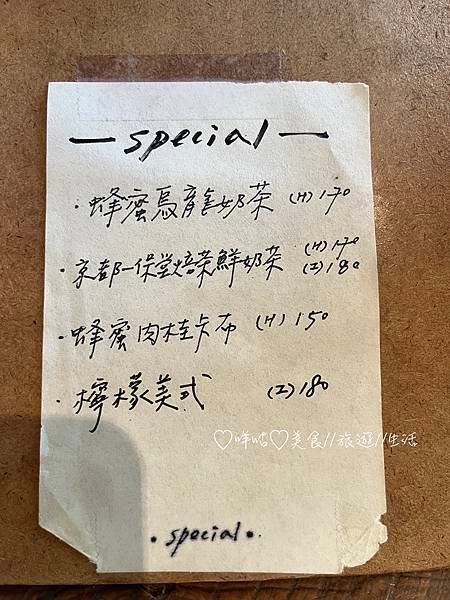 — special —
· 蜂蜜烏龍奶茶 (H) 170
· 京都一保堂焙茶鮮奶茶 (H) 170
(I) 180
· 蜂蜜肉桂卡布 (H) 150
· 檸檬美式 (I) 180
♡咩咕♡美食//旅遊//生活
• special •